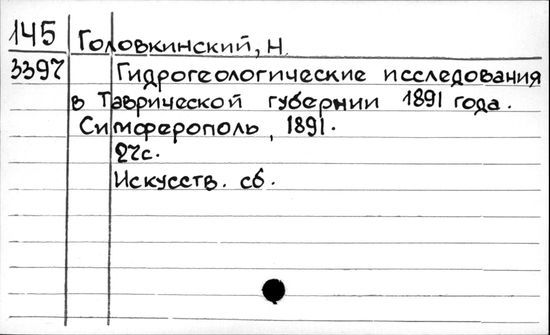 145 Головкинский, Н.
3397 Гидрогеологические исследования
в Таврической губернии 1891 года.
Симферополь, 1891.
27с.
Искусств. сб.